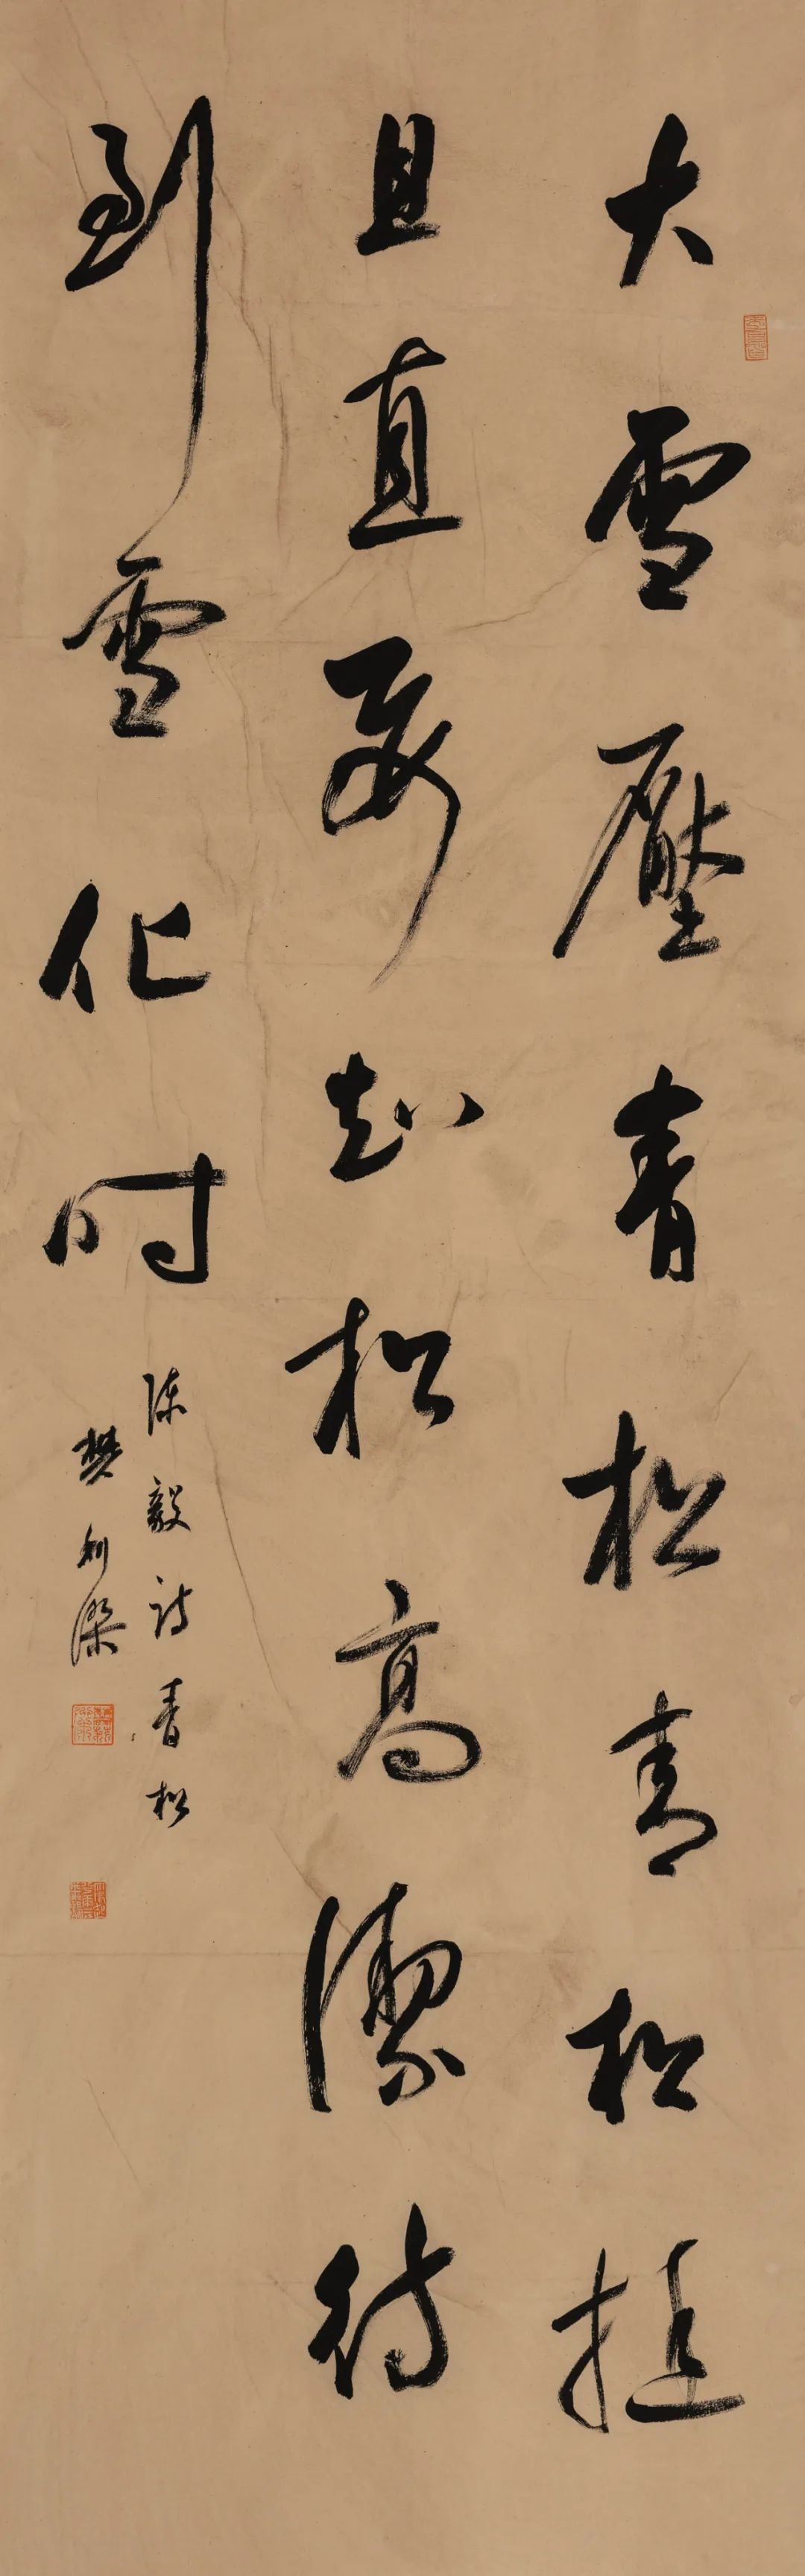 大雪壓青松青松挺
且直要知松高潔待
到雪化时
陈毅诗青松
樊利杰